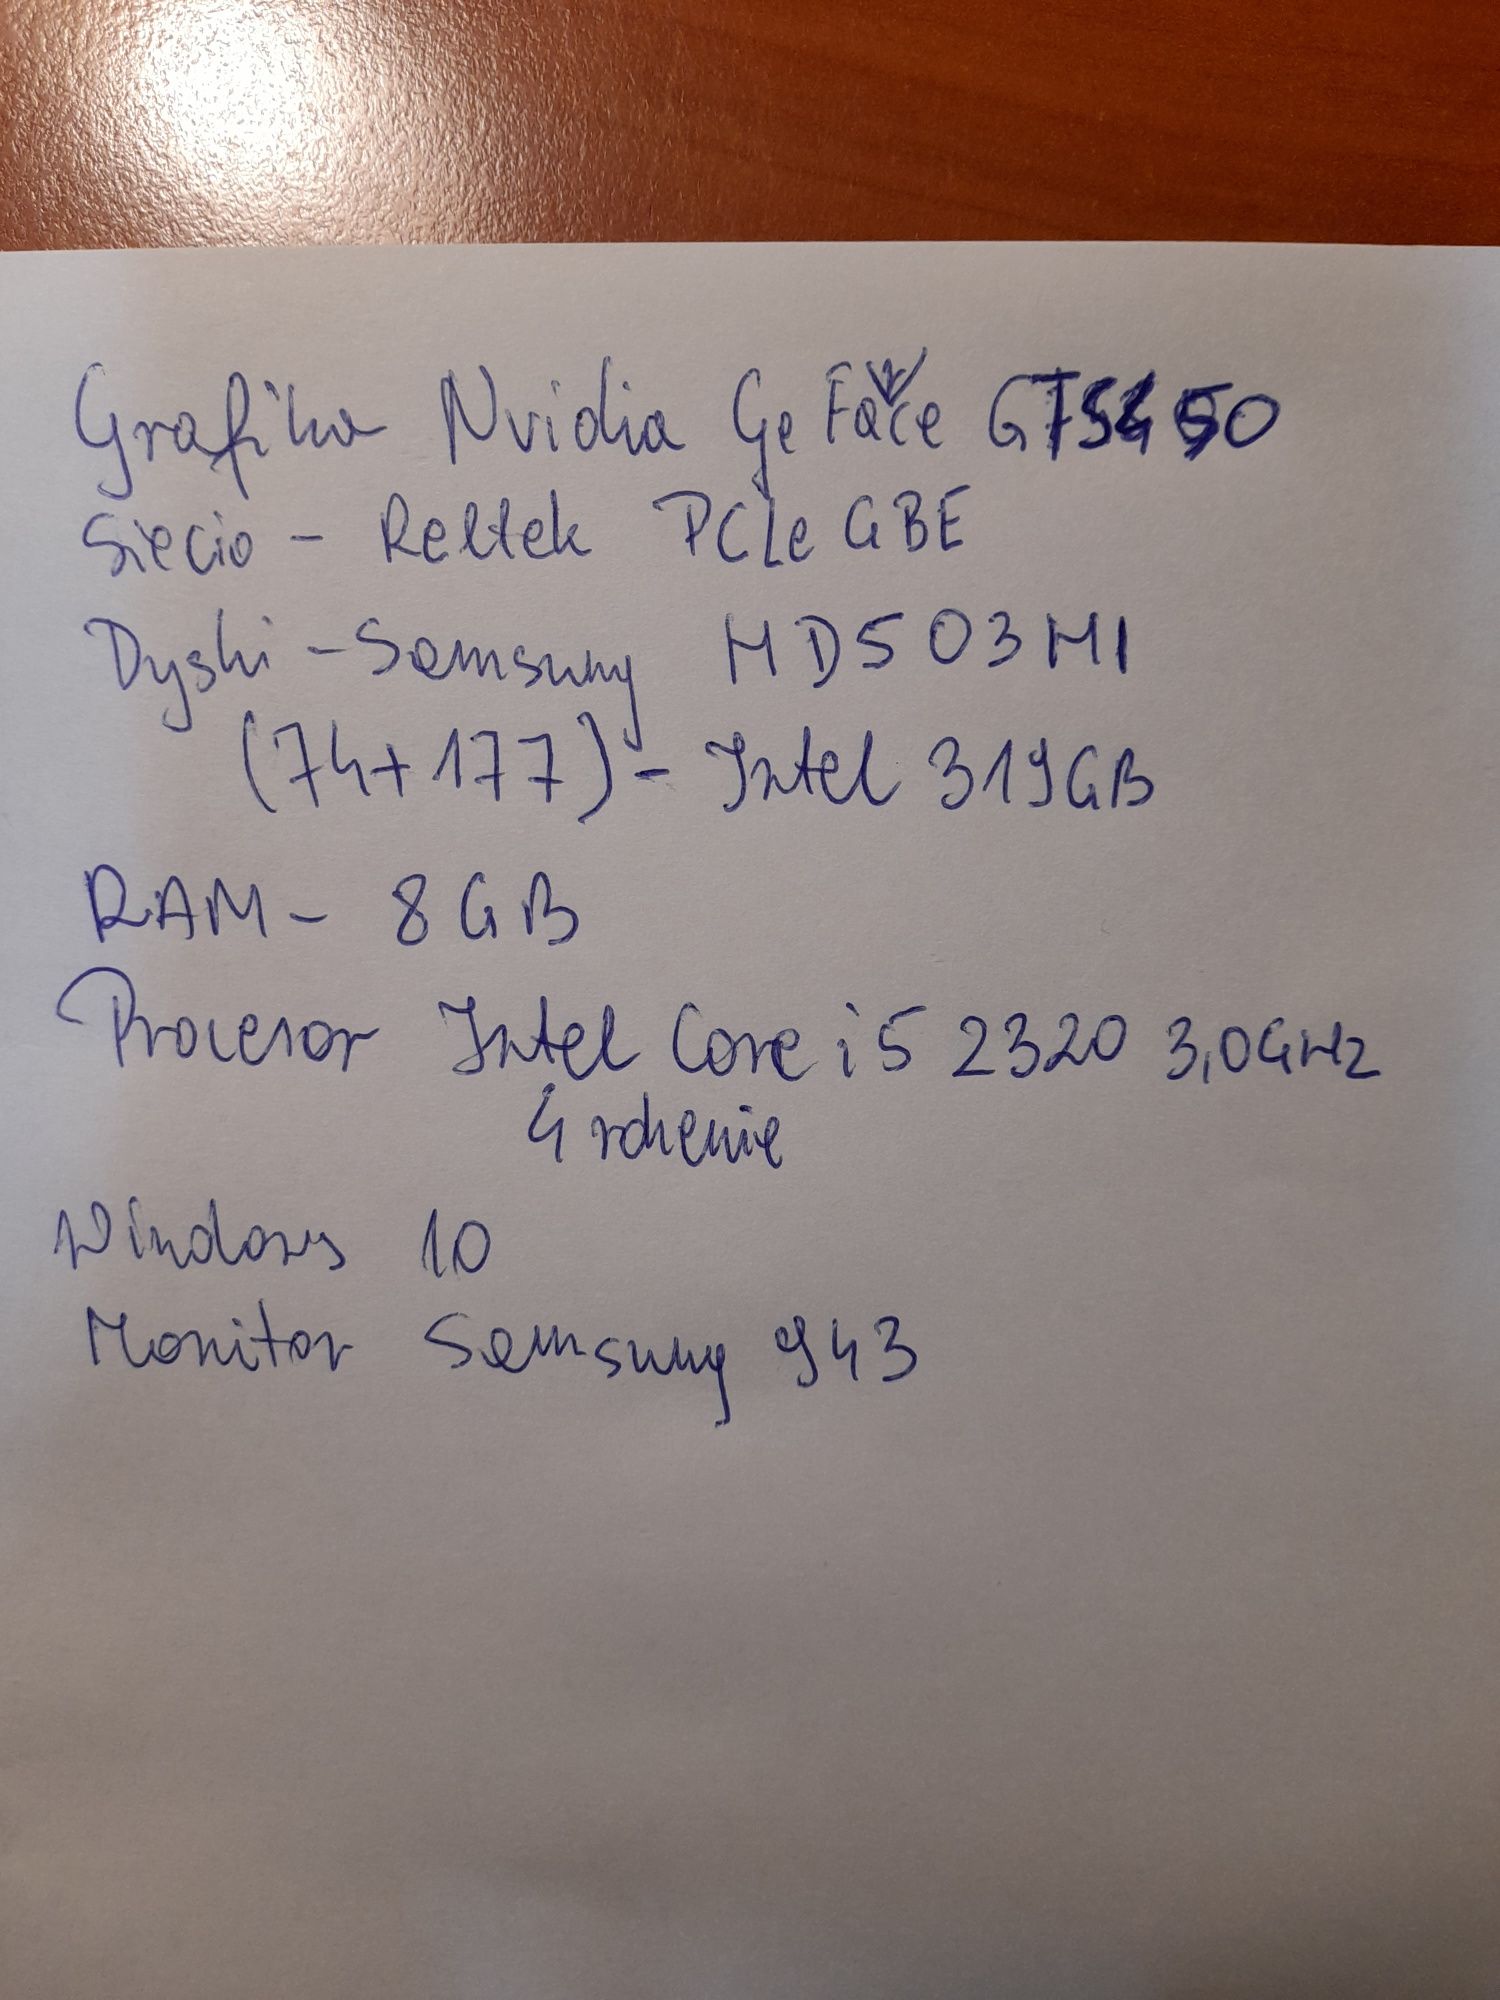 Grafika Nvidia GeForce GTS450
Siecio - Reltek PCIe GBE
Dyski - Samsung HD503HI
(74+177) - Intel 319GB
RAM - 8GB
Procesor Intel Core i5 2320 3,0GHz
4 rdzenie
Windows 10
Monitor Samsung 943